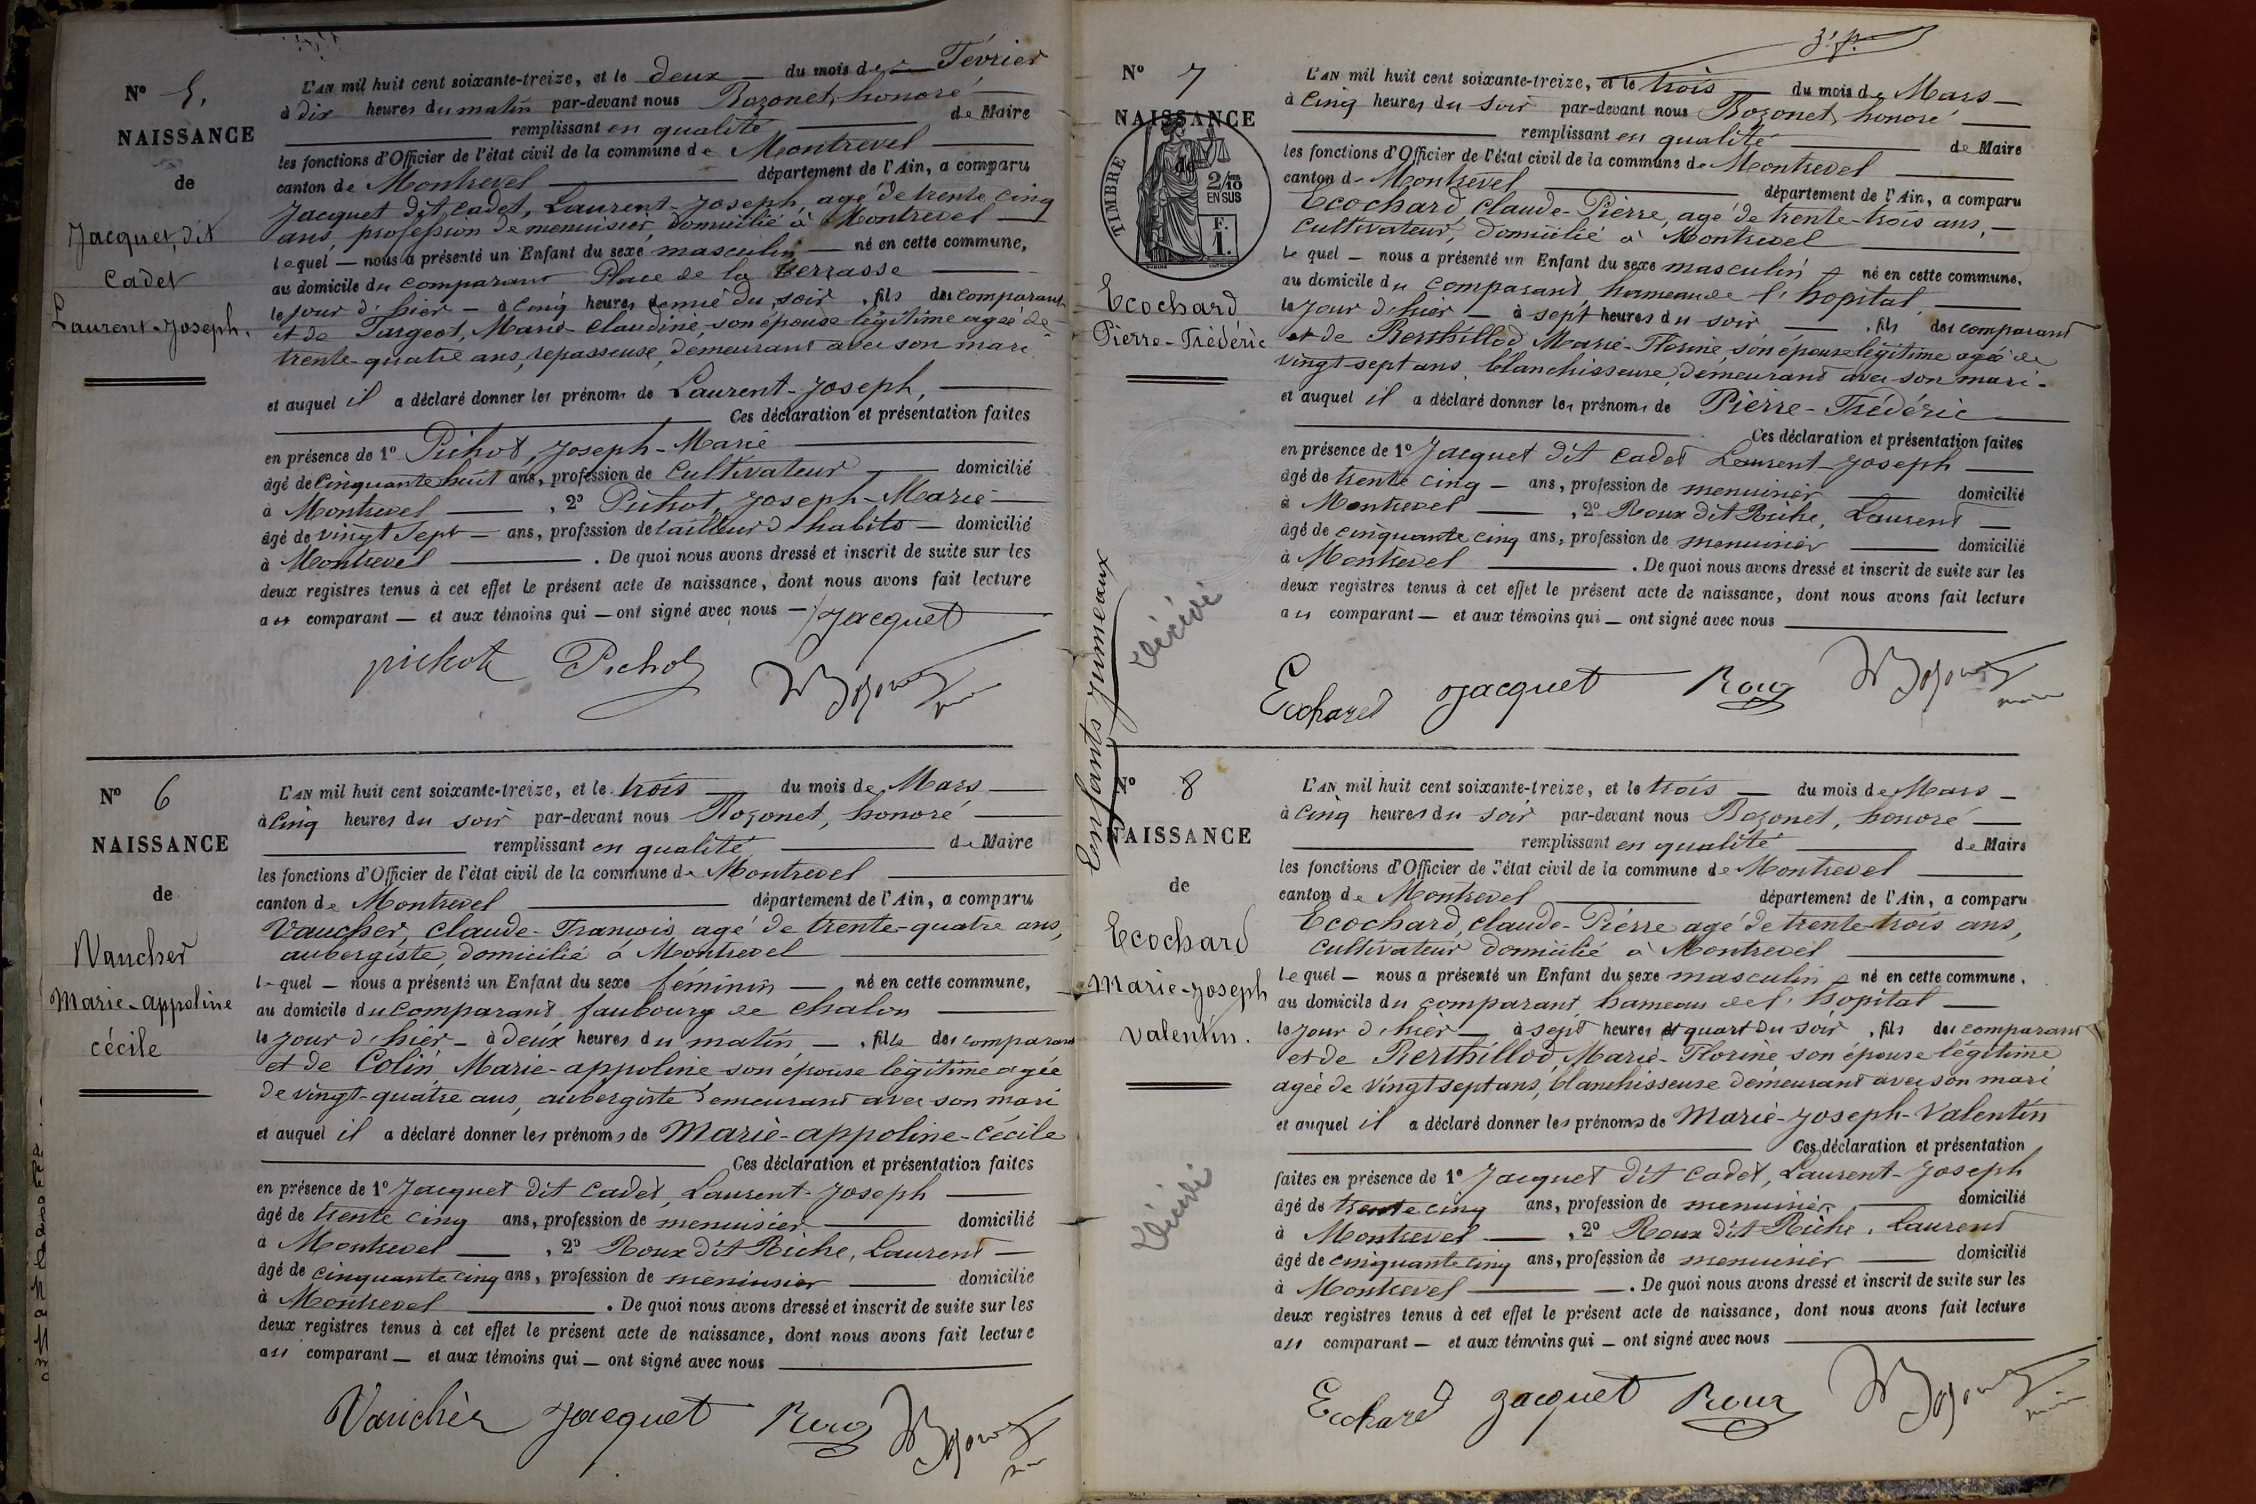 N° 5.
NAISSANCE
de
Jacquet, dit
Cadet
Laurent-Joseph.
L'AN mil huit cent soixante-treize, et le deux du mois de Février
à dix heures du matin par-devant nous Bozonet, honoré
remplissant en qualité de Maire
les fonctions d'Officier de l'état civil de la commune de Montrevel
canton de Montrevel département de l'Ain, a comparu
Jacquet dit Cadet, Laurent-Joseph, agé de trente cinq
ans, profession de menuisier, domicilié à Montrevel
lequel — nous a présenté un Enfant du sexe masculin — né en cette commune,
au domicile du comparant Place de la terrasse
le jour d'hier — à cinq heures demie du soir, fils des comparant
et de Targeot, Marie-Claudine, son épouse légitime agée de
trente-quatre ans, repasseuse, demeurant avec son mari
et auquel il a déclaré donner les prénoms de Laurent-Joseph,
Ces déclaration et présentation faites
en présence de 1° Pichot, Joseph-Marie
âgé de Cinquante huit ans, profession de Cultivateur domicilié
à Montrevel, 2° Pichot, Joseph-Marie
âgé de vingt Sept — ans, profession de tailleur d'habits — domicilié
à Montrevel. De quoi nous avons dressé et inscrit de suite sur les
deux registres tenus à cet effet le présent acte de naissance, dont nous avons fait lecture
au comparant — et aux témoins qui — ont signé avec nous —
Jacquet
pichot Pichot Bozonet
N° 6
NAISSANCE
de
Vaucher
Marie-appoline
cécile
L'AN mil huit cent soixante-treize, et le trois du mois de Mars
à Cinq heures du soir par-devant nous Bozonet, honoré
remplissant en qualité de Maire
les fonctions d'Officier de l'état civil de la commune de Montrevel
canton de Montrevel département de l'Ain, a comparu
Vaucher, Claude-François, agé de trente-quatre ans,
aubergiste, domicilié à Montrevel
lequel — nous a présenté un Enfant du sexe féminin — né en cette commune,
au domicile du comparant faubourg de Chalon
le jour d'hier — à deux heures du matin —, fille des comparant
et de Colin Marie-appoline son épouse légitime agée
de vingt-quatre ans, aubergiste demeurant avec son mari
et auquel il a déclaré donner les prénoms de Marie-appoline-Cécile
Ces déclaration et présentation faites
en présence de 1° Jacquet dit Cadet, Laurent-Joseph
âgé de trente cinq ans, profession de menuisier domicilié
à Montrevel, 2° Roux dit Riche, Laurent
âgé de cinquante cinq ans, profession de menuisier domicilié
à Montrevel. De quoi nous avons dressé et inscrit de suite sur les
deux registres tenus à cet effet le présent acte de naissance, dont nous avons fait lecture
au comparant — et aux témoins qui — ont signé avec nous
Vaucher Jacquet Roux Bozonet
N° 7
NAISSANCE
de
TIMBRE
2/10 EN SUS
F. 1.
Ecochard
Pierre-Frédéric
Enfants jumeaux
décédé
L'AN mil huit cent soixante-treize, et le trois du mois de Mars
à Cinq heures du soir par-devant nous Bozonet, honoré
remplissant en qualité de Maire
les fonctions d'Officier de l'état civil de la commune de Montrevel
canton de Montrevel département de l'Ain, a comparu
Ecochard, Claude-Pierre, agé de trente-trois ans,
cultivateur, domicilié à Montrevel
lequel — nous a présenté un Enfant du sexe masculin né en cette commune,
au domicile du comparant, hameau de l'hopital
le jour d'hier — à sept heures du soir, fils des comparant
et de Berthillod, Marie-Florine, son épouse légitime agée de
vingt-sept ans, blanchisseuse, demeurant avec son mari.
et auquel il a déclaré donner les prénoms de Pierre-Frédéric
Ces déclaration et présentation faites
en présence de 1° Jacquet dit Cadet Laurent-Joseph
âgé de trente cinq — ans, profession de menuisier domicilié
à Montrevel, 2° Roux dit Riche, Laurent
âgé de cinquante cinq ans, profession de menuisier domicilié
à Montrevel. De quoi nous avons dressé et inscrit de suite sur les
deux registres tenus à cet effet le présent acte de naissance, dont nous avons fait lecture
au comparant — et aux témoins qui — ont signé avec nous
Ecochard Jacquet Roux Bozonet
N° 8
NAISSANCE
de
Ecochard
Marie-Joseph
Valentin.
décédé
L'AN mil huit cent soixante-treize, et le trois du mois de Mars
à cinq heures du soir par-devant nous Bozonet, honoré
remplissant en qualité de Maire
les fonctions d'Officier de l'état civil de la commune de Montrevel
canton de Montrevel département de l'Ain, a comparu
Ecochard, Claude-Pierre agé de trente-trois ans,
cultivateur domicilié à Montrevel
lequel — nous a présenté un Enfant du sexe masculin né en cette commune,
au domicile du comparant, hameau de l'hopital
le jour d'hier — à sept heures et quart du soir, fils des comparant
et de Berthillod, Marie-Florine son épouse légitime
agée de vingt sept ans, blanchisseuse demeurant avec son mari
et auquel il a déclaré donner les prénoms de Marie-Joseph-Valentin
Ces déclaration et présentation
faites en présence de 1° Jacquet dit Cadet, Laurent-Joseph
âgé de trente cinq ans, profession de menuisier domicilié
à Montrevel, 2° Roux dit Riche, Laurent
âgé de cinquante cinq ans, profession de menuisier domicilié
à Montrevel. De quoi nous avons dressé et inscrit de suite sur les
deux registres tenus à cet effet le présent acte de naissance, dont nous avons fait lecture
au comparant — et aux témoins qui — ont signé avec nous
Ecochard Jacquet Roux Bozonet